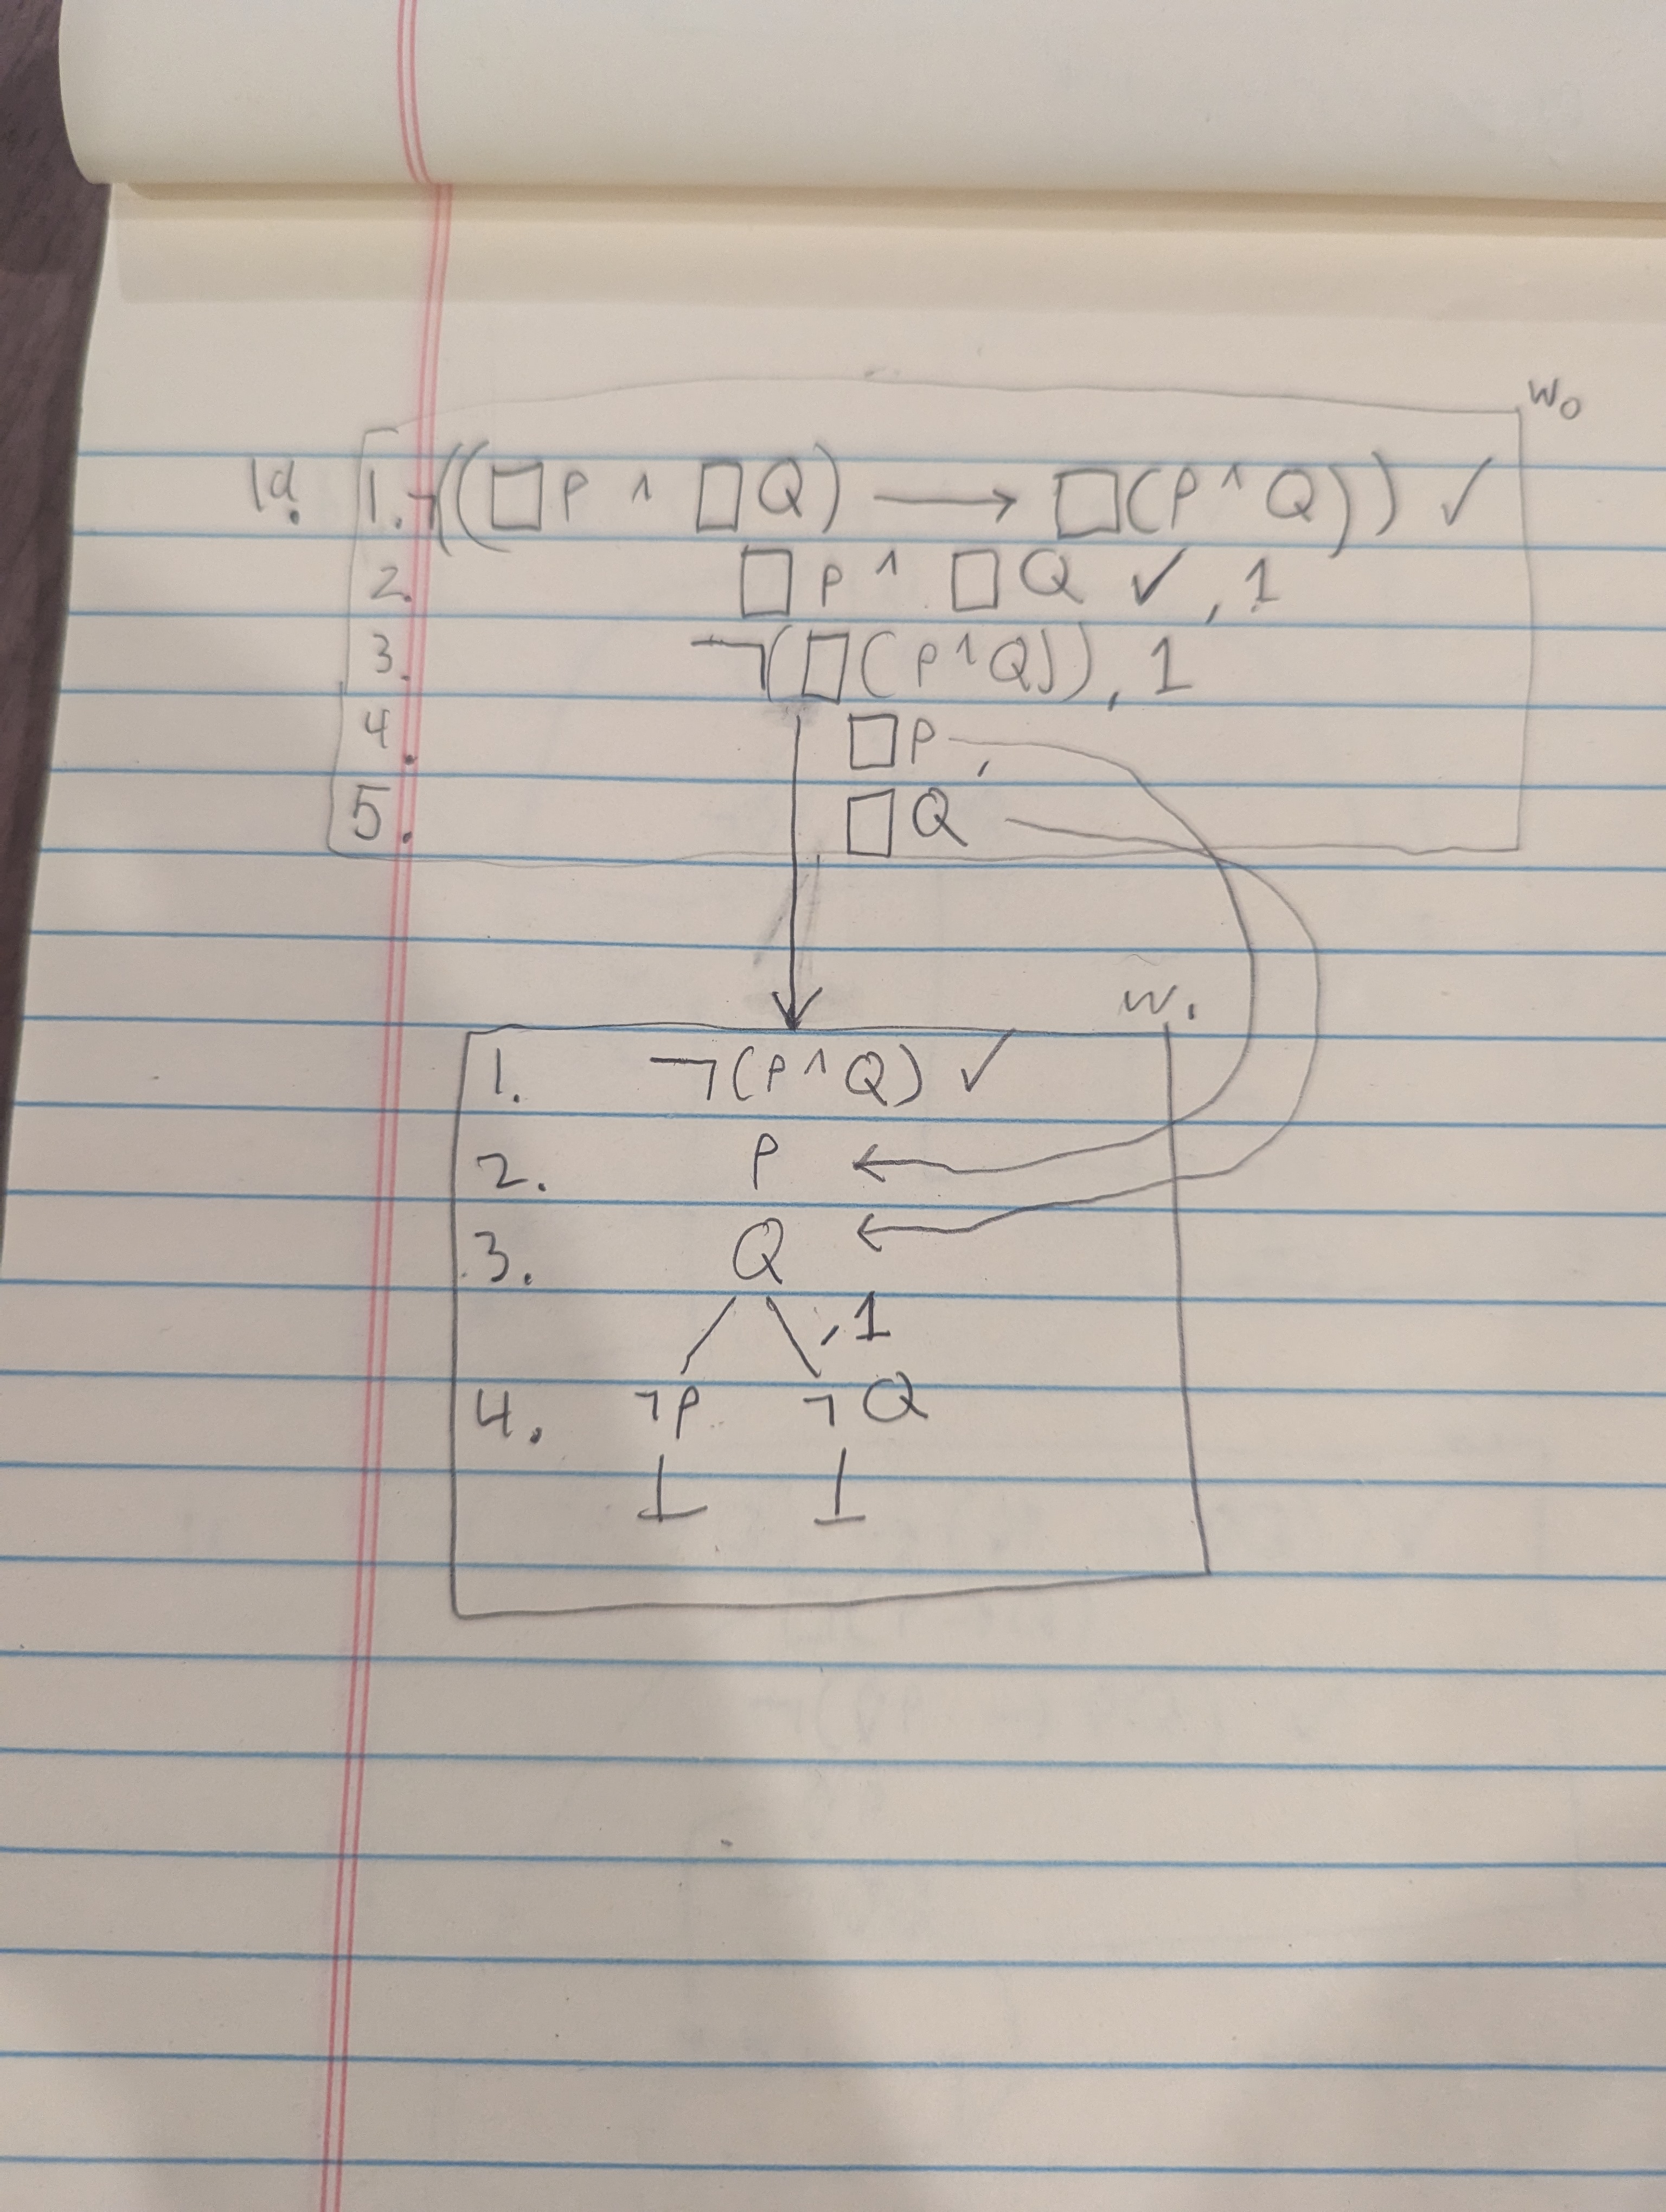 w₀
1a. 1. ¬((□P ∧ □Q) → □(P ∧ Q)) ✓
2. □P ∧ □Q ✓, 1
3. ¬(□(P ∧ Q)), 1
4. □P,
5. □Q
w₁
1. ¬(P ∧ Q) ✓
2. P
3. Q
, 1
4. ¬P ¬Q
⊥ ⊥